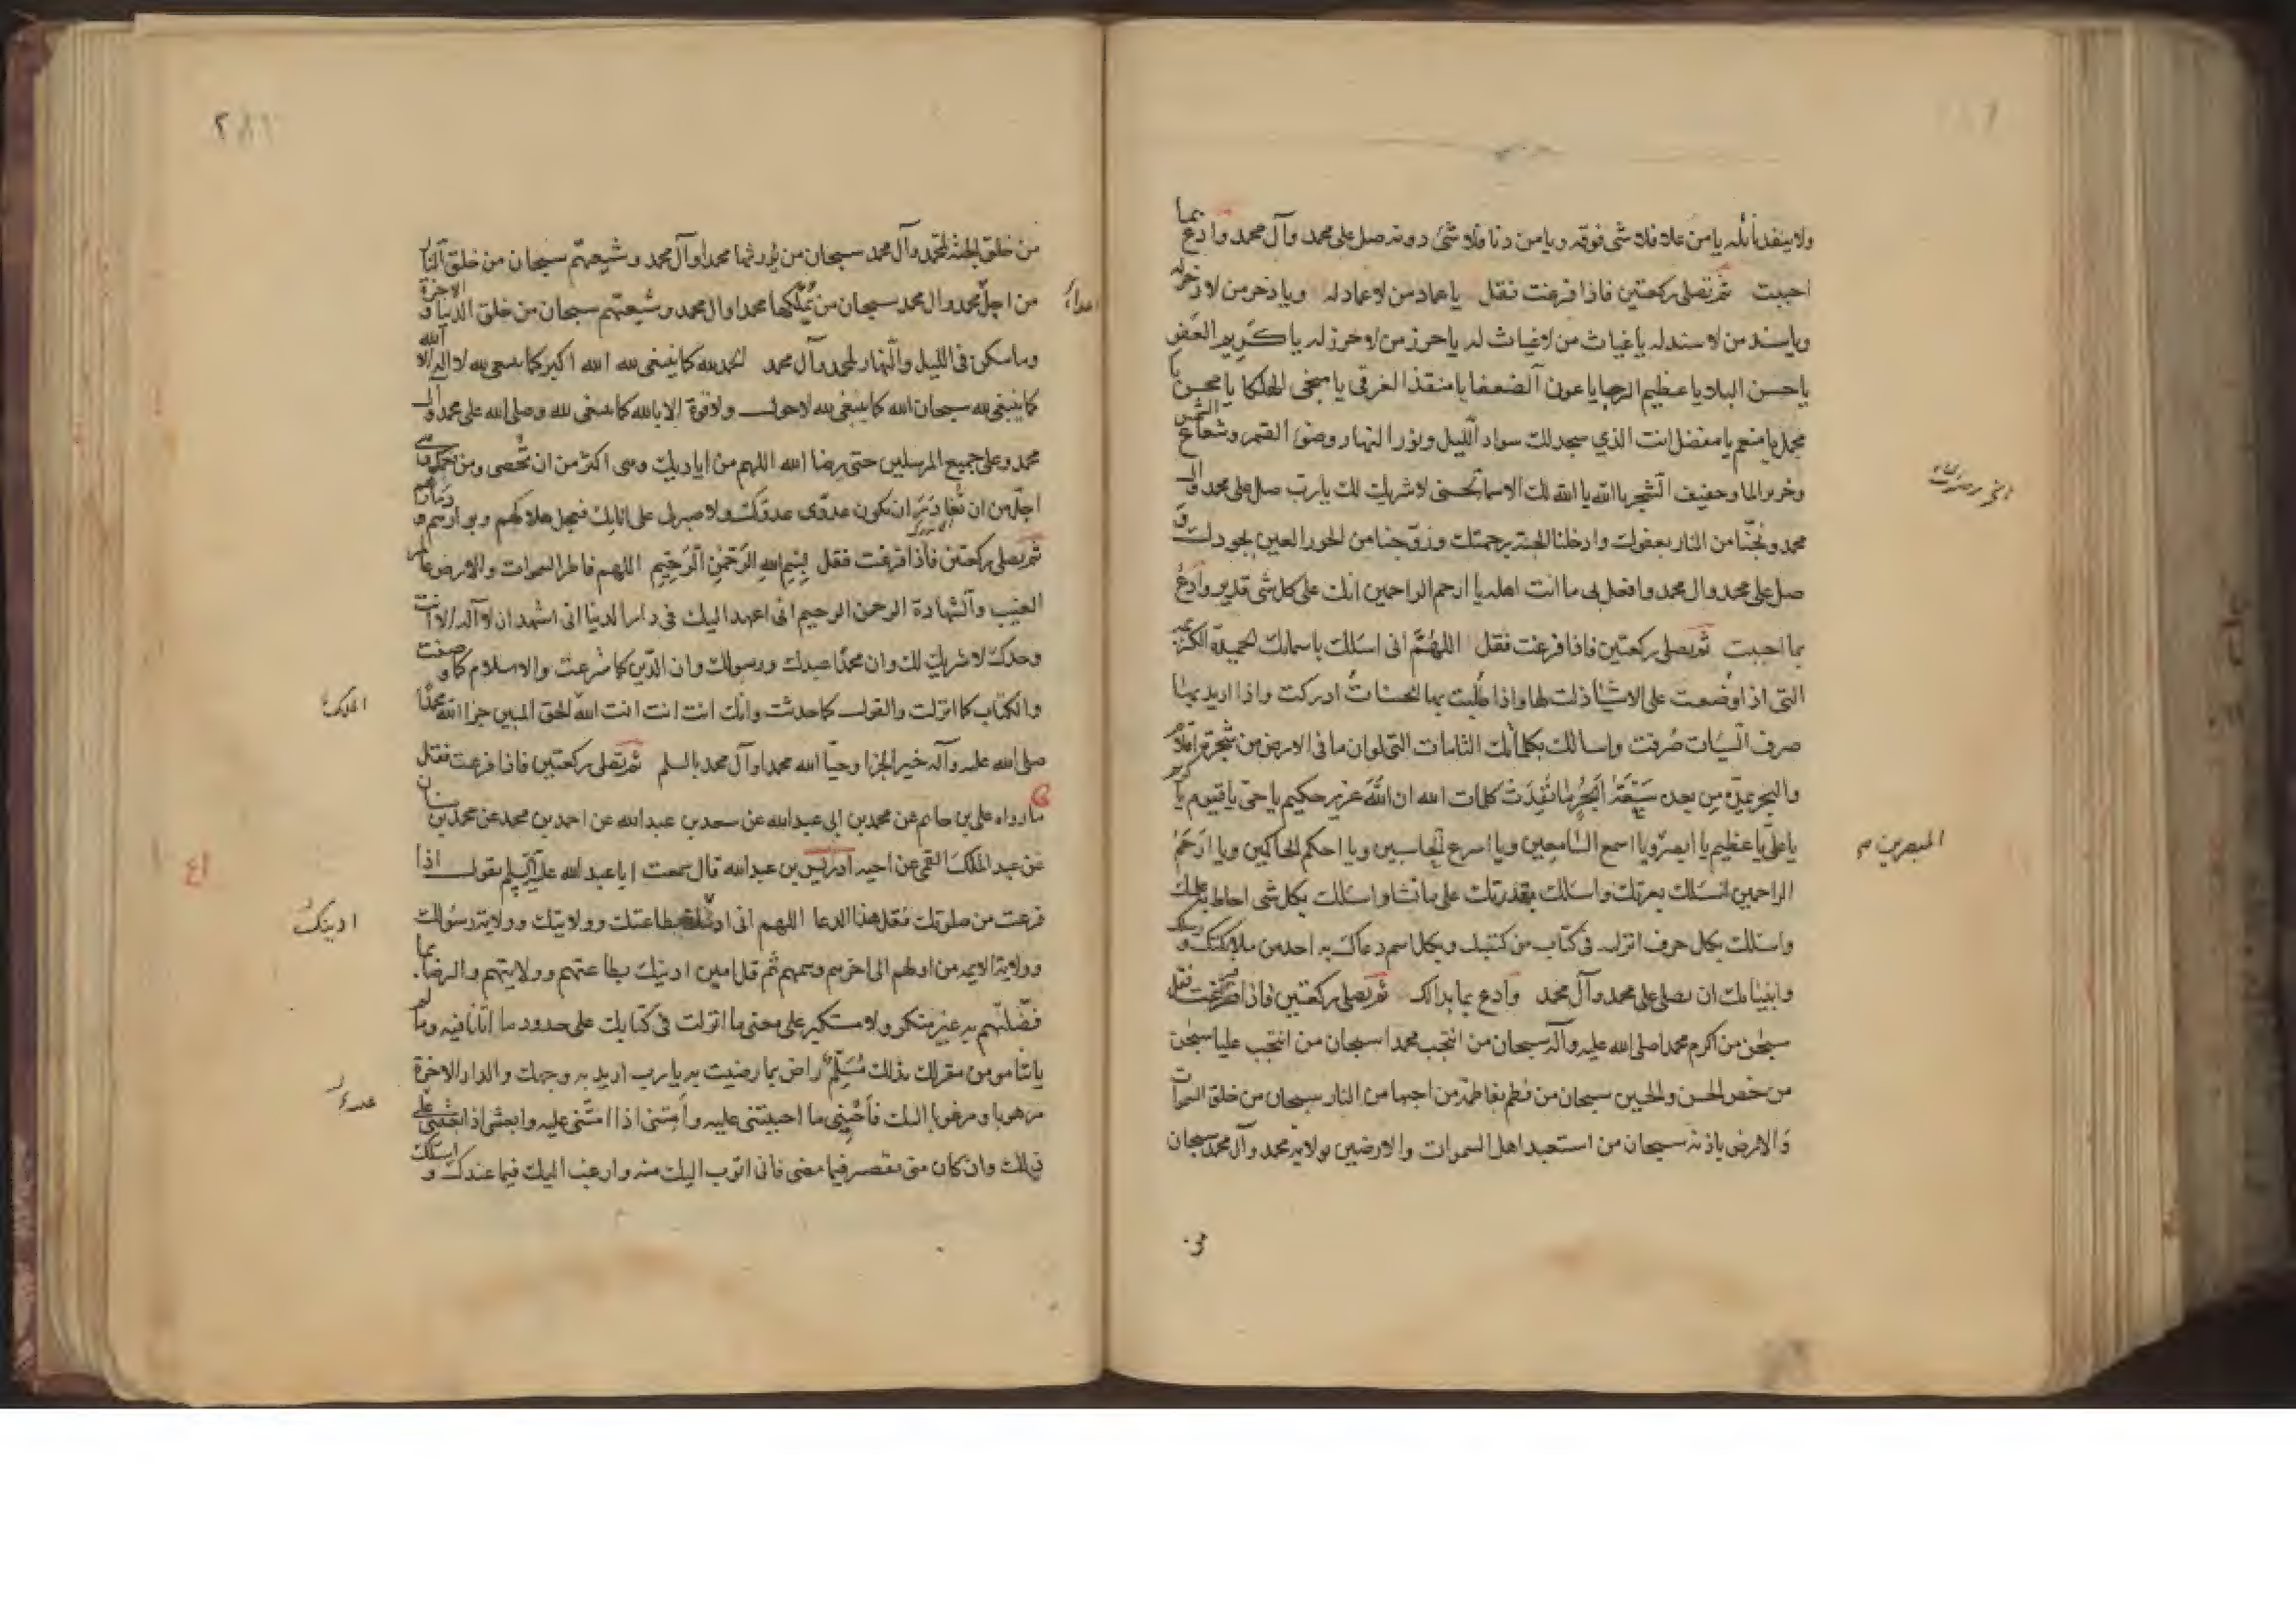 ولا ينفد نائله يا من علا فلا شئ فوقه ويا من دنا فلا شئ دونه صل على محمد وآل محمد وادع بما
احببت ثم تصلى ركعتين فاذا فرغت فقل يا عماد من لا عماد له ويا ذخر من لا ذخر له
ويا سند من لا سند له يا غياث من لا غياث له يا حرز من لا حرز له يا كريم العفو
يا حسن البلاء يا عظيم الرجا يا عون الضعفا يا منقذ الغرقى يا منجى الهلكا يا محسن يا
مجمل يا منعم يا مفضل انت الذي سجد لك سواد الليل ونور النهار وضوء القمر وشعاع الشمس
وخرير الما وحفيف الشجر يا الله يا الله لك الاسما الحسنى لا شريك لك يا رب صل على محمد وال
محمد ونجنا من النار بعفوك وادخلنا الجنة برحمتك وزوجنا من الحور العين بجودك و
صل على محمد وال محمد وافعل بى ما انت اهله يا ارحم الراحمين انك على كل شى قدير وادع
بما احببت ثم تصلى ركعتين فاذا فرغت فقل اللهم انى اسئلك باسمائك الحميدة الكريمة
التى اذا وضعت على الاشيا ذلت لها واذا طلبت بها الحسنات ادركت واذا اريد بها
صرف السيات صرفت واسالك بكلماتك التامات التى لو ان ما فى الارض من شجرة اقلام
والبحر يمده من بعده سبعة ابحر ما نفدت كلمات الله ان الله عزيز حكيم يا حى يا قيوم يا كريم
يا على يا عظيم يا ابصر ويا اسمع السامعين ويا اسرع الحاسبين ويا احكم الحاكمين ويا ارحم
الراحمين اسئلك بعزتك واسئلك بقدرتك على ما تشا واسئلك بكل شى احاط به علمك
واسئلك بكل حرف انزلته فى كتاب من كتبك وبكل اسم دعاك به احد من ملائكتك ورسلك
وانبيائك ان تصلى على محمد وآل محمد وادع بما بدا لك ثم تصلى ركعتين فاذا فرغت فقل
سبحن من اكرم محمدا صلى الله عليه وآله سبحان من انتجب محمدا سبحان من انتجب عليا سبحن
من خص الحسن والحسين سبحان من فطم بفاطمة من احبها من النار سبحان من خلق السموات
والارض باذنه سبحان من استعبد اهل السموات والارضين بولاية محمد وآل محمد سبحان
من
المبصرين
من خلق الجنة لمحمد وآل محمد سبحان من يورثها محمدا وآل محمد وشيعتهم سبحان من خلق النار
من اجل محمد وال محمد سبحان من يملكها محمدا وال محمد وشيعتهم سبحان من خلق الدنيا والاخرة
وما سكن فى الليل والنهار لمحمد وآل محمد الحمد لله كما ينبغى لله الله اكبر كما ينبغى لله لا اله الا الله
كما ينبغى لله سبحان الله كما ينبغى لله لا حول ولا قوة الا بالله كما ينبغى لله وصلى الله على محمد وال
محمد وعلى جميع المرسلين حتى يرضا الله اللهم من اياديك وهى اكثر من ان تحصى ومن نعمك وهى
اجل من ان تغادر ان يكون عدوى عدوك ولا صبر لى على اناتك فعجل هلاكهم وبوارهم ودمارهم
ثم تصلى ركعتين فاذا فرغت فقل بسم الله الرحمن الرحيم اللهم فاطر السموات والارض عالم
الغيب والشهادة الرحمن الرحيم انى اعهد اليك فى دار الدنيا انى اشهد ان لا اله الا انت
وحدك لا شريك لك وان محمدا عبدك ورسولك وان الدين كما شرعت والاسلام كما وصفت
والكتاب كما انزلت والقول كما حدثت وانك انت انت انت الله الحق المبين جزا الله محمدا
صلى الله عليه وآله خير الجزا وحيا الله محمدا وآل محمد بالسلم ثم تصلى ركعتين فاذا فرغت فقل
ما رواه على بن حاتم عن محمد بن ابى عبدالله عن سعد بن عبدالله عن احمد بن محمد عن محمد بن سنان
عن عبد الملك القمى عن اخيه ادريس بن عبدالله قال سمعت ابا عبد الله عليه السلم يقول اذا
فرغت من صلوتك فقل هذا الدعا اللهم انى ادينك بطاعتك وولايتك وولاية رسولك
وولاية الايمه من اولهم الى اخرهم وسمهم ثم قل امين ادينك بطاعتهم وولايتهم والرضا بما
فضلتهم به غير منكر ولا مستكبر على معنى ما انزلت فى كتابك على حدود ما اتانا فيه وما لم
ياتنا مومن مقر لك بذلك مسلم راض بما رضيت به يا رب اريد به وجهك والدار الاخرة
مرهوبا ومرغوبا اليك فاحينى ما احييتنى عليه وامتنى اذا امتنى عليه وابعثنى اذا بعثتنى على
ذلك وان كان منى تقصير فيما مضى فانى اتوب اليك منه وارغب اليك فيما عندك واسئلك
اعداء
الملك
ادينك